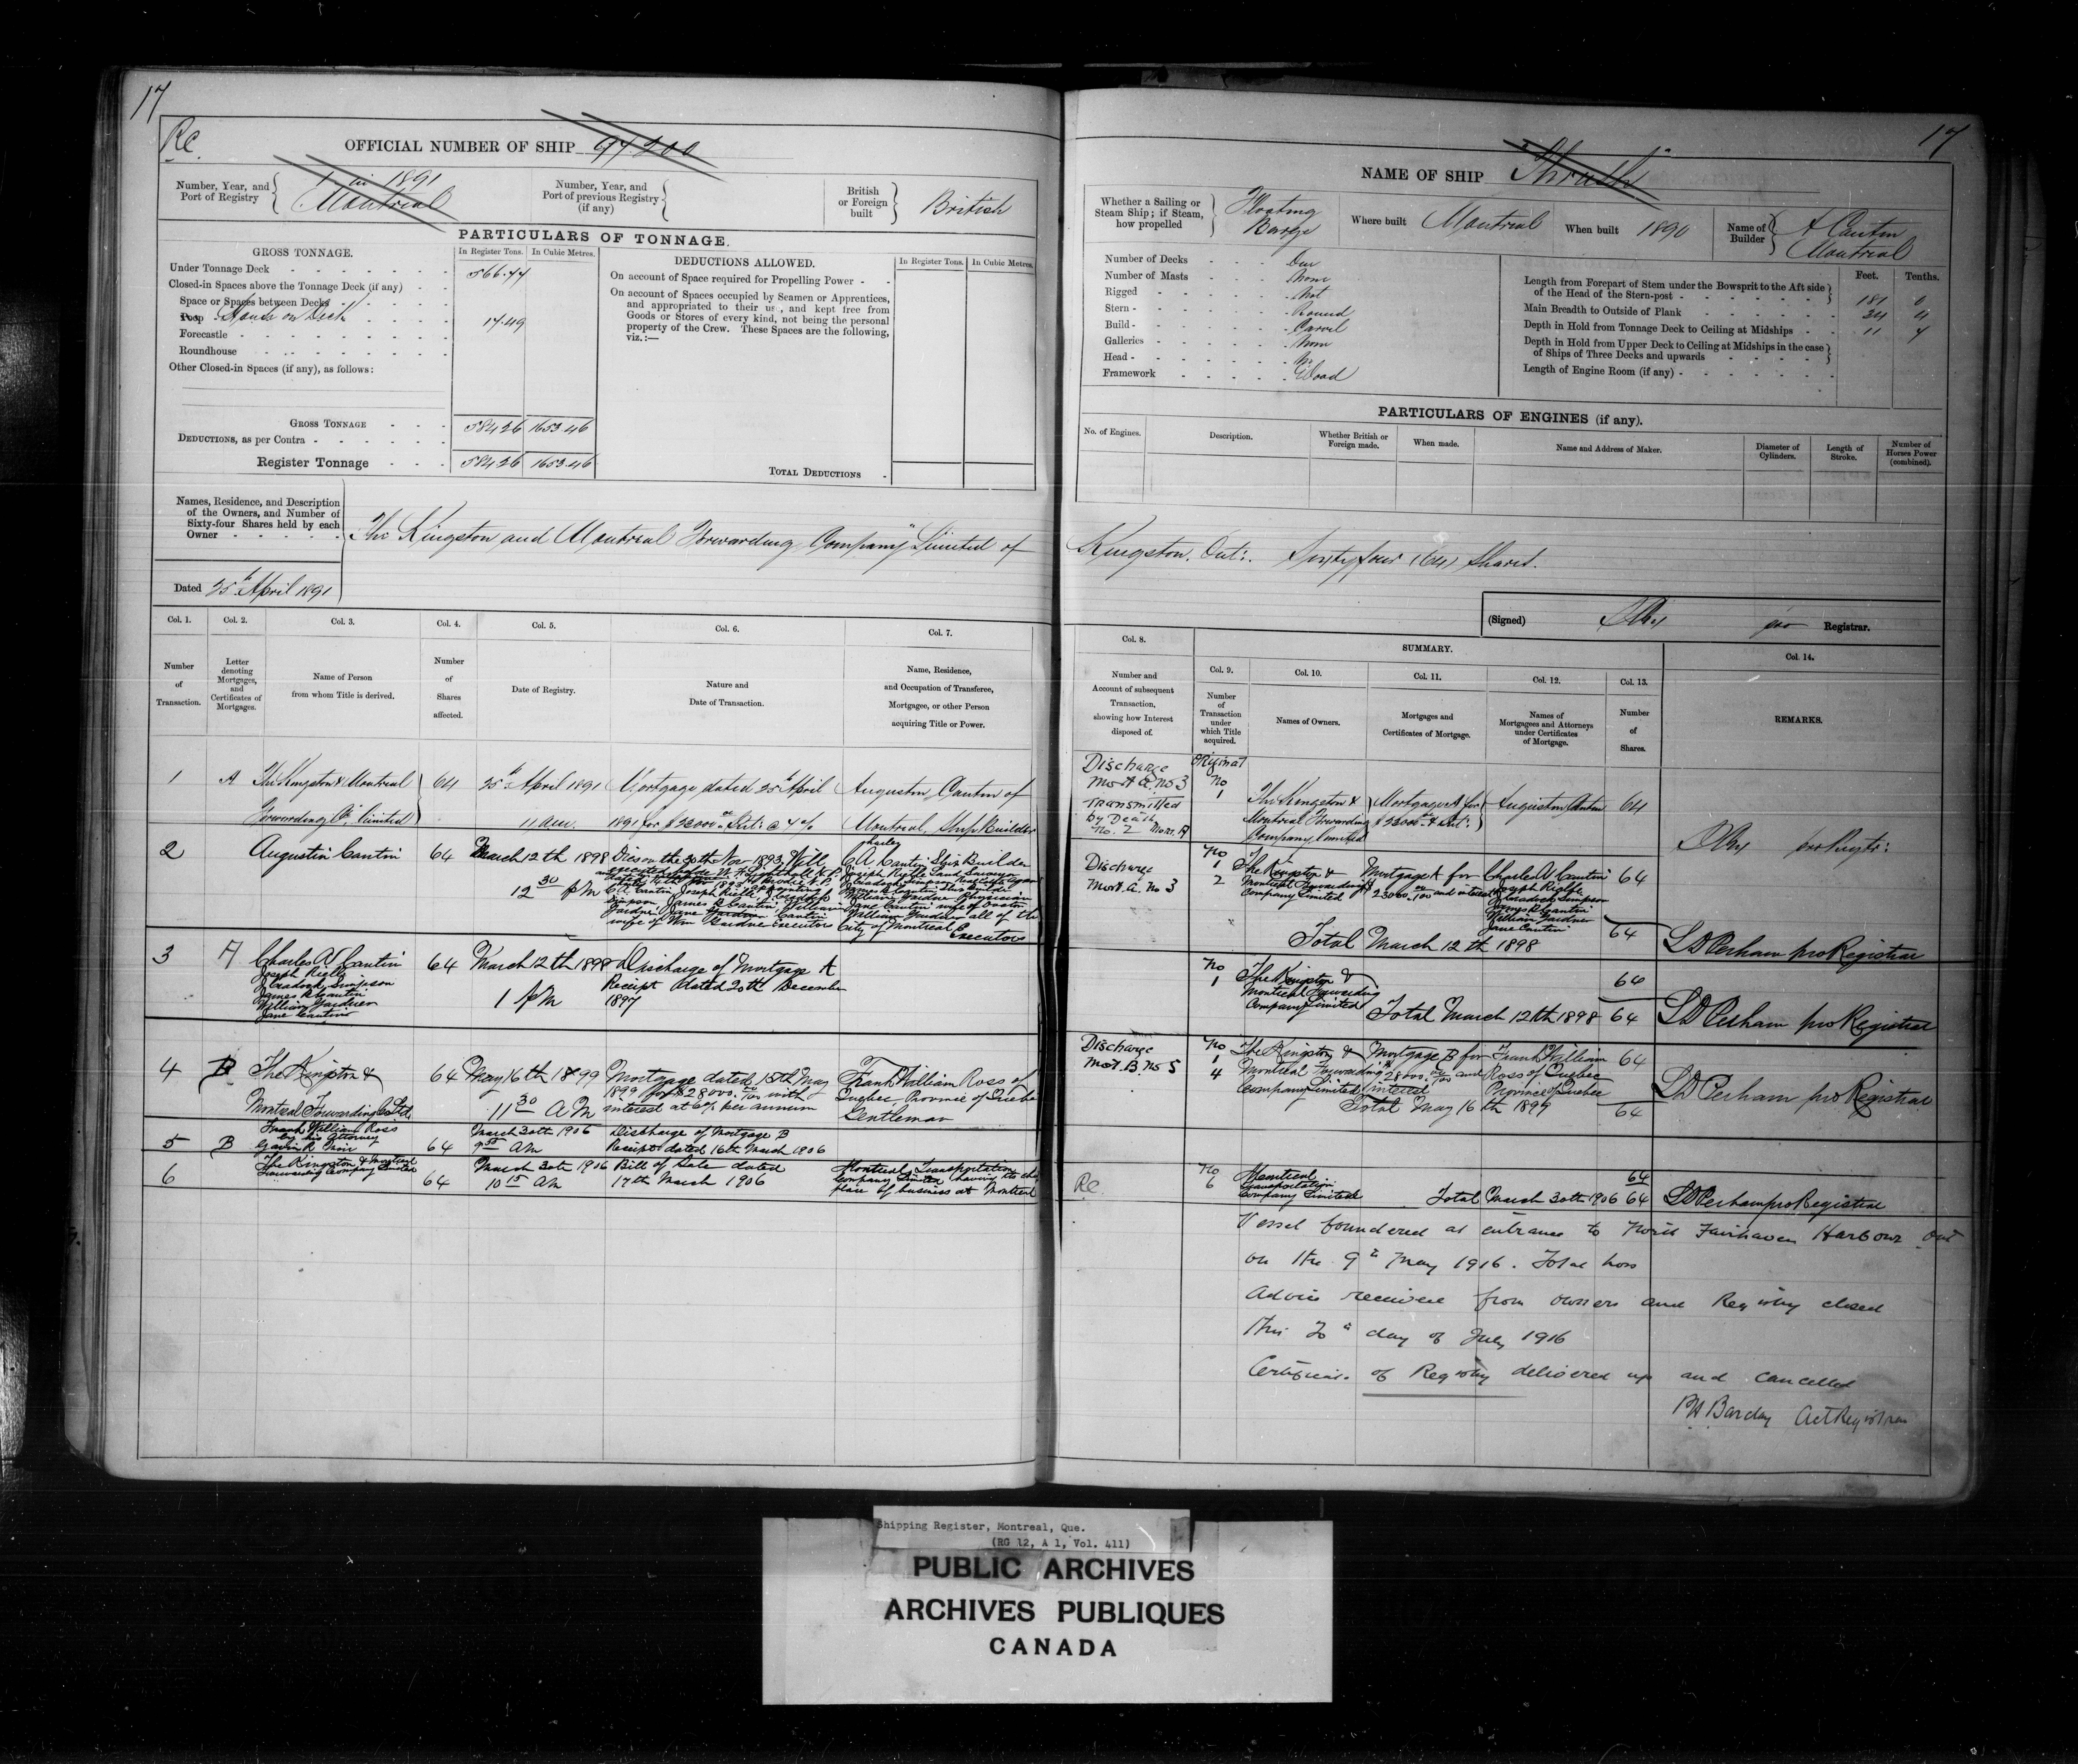 17
Re.
OFFICIAL NUMBER OF SHIP
Number, Year, and Port of Registry
1 in 1891
Montreal
Number, Year, and Port of previous Registry (if any)
British or Foreign built
British
PARTICULARS OF TONNAGE.
GROSS TONNAGE.
In Register Tons.
In Cubic Metres.
Under Tonnage Deck
566.77
Closed-in Spaces above the Tonnage Deck (if any)
Space or Spaces between Decks
Poop House on Deck
17.49
Forecastle
Roundhouse
Other Closed-in Spaces (if any), as follows:
GROSS TONNAGE
584.26 1653.46
DEDUCTIONS, as per Contra
Register Tonnage
584.26 1653.46
DEDUCTIONS ALLOWED.
In Register Tons.
In Cubic Metres.
On account of Space required for Propelling Power
On account of Spaces occupied by Seamen or Apprentices,
and appropriated to their use, and kept free from
Goods or Stores of every kind, not being the personal
property of the Crew. These Spaces are the following,
viz.:—
TOTAL DEDUCTIONS
Names, Residence, and Description
of the Owners, and Number of
Sixty-four Shares held by each
Owner
The Kingston and Montreal Forwarding Company Limited of
Dated 25th April 1891
Col. 1.
Number of Transaction.
Col. 2.
Letter denoting Mortgages, and Certificates of Mortgages.
Col. 3.
Name of Person from whom Title is derived.
Col. 4.
Number of Shares affected.
Col. 5.
Date of Registry.
Col. 6.
Nature and Date of Transaction.
Col. 7.
Name, Residence, and Occupation of Transferee, Mortgagee, or other Person acquiring Title or Power.
1 A The Kingston & Montreal 64 25th April 1891 Mortgage dated 25th April Augustin Cantin of
Forwarding Co. Limited 11 am. 1891 for Montreal, Ship Builder
2 Augustin Cantin 64 March 12th 1898 Dies on the 30th Nov 1893, Will
12 30 PM
Charles A Cantin Ship Builder
Joseph Rielle Land Surveyor
William Gardner Physician
William Gardner all of the
City of Montreal Executors
3 A Charles A Cantin 64 March 12th 1898 Discharge of Mortgage A
Joseph Rielle
J Cradock Simpson
James R Cantin
William Gardner
Jane Cantin
1 PM
Receipt dated 20th December
1897
4 B The Kingston & 64 May 16th 1899 Mortgage dated 15th May Frank William Ross of
Montreal Forwarding Co Ltd. 11 30 AM 1899 for $28000. 00/100 with Quebec Province of Quebec
interest at 6% per annum Gentleman
5 B Frank William Ross
by his Attorney
64 March 30th 1906 Discharge of Mortgage B
AM Receipt dated 16th March 1906
6 The Kingston & Montreal
Forwarding Company Limited
64 March 30th 1906 Bill of Sale dated Montreal Transportation
10 15 AM 17th March 1906 Company Limited having its chief
place of business at Montreal
17
NAME OF SHIP "Thrush"
Whether a Sailing or Steam Ship; if Steam, how propelled
Floating Barge
Where built Montreal
When built 1890
Name of Builder
A Cantin
Montreal
Number of Decks One
Number of Masts None
Rigged Not
Stern Round
Build Carvel
Galleries None
Head No
Framework Wood
Feet. Tenths.
Length from Forepart of Stem under the Bowsprit to the Aft side
of the Head of the Stern-post 181 0
Main Breadth to Outside of Plank 34 4
Depth in Hold from Tonnage Deck to Ceiling at Midships 11 7
Depth in Hold from Upper Deck to Ceiling at Midships in the case
of Ships of Three Decks and upwards
Length of Engine Room (if any)
PARTICULARS OF ENGINES (if any).
No. of Engines.
Description.
Whether British or Foreign made.
When made.
Name and Address of Maker.
Diameter of Cylinders.
Length of Stroke.
Number of Horses Power (combined).
Kingston. Ont:. Sixty four (64) Shares.
(Signed)
pro Registrar.
Col. 8.
Number and Account of subsequent Transaction, showing how Interest disposed of.
SUMMARY.
Col. 9.
Number of Transaction under which Title acquired.
Col. 10.
Names of Owners.
Col. 11.
Mortgages and Certificates of Mortgage.
Col. 12.
Names of Mortgagees and Attorneys under Certificates of Mortgage.
Col. 13.
Number of Shares.
Col. 14.
REMARKS.
Discharge
Mort A. No 3
Transmitted
by Death
No. 2 Mort. A
Original
No
1
The Kingston &
Montreal Forwarding
Company Limited
Mortgage A for
Augustin Cantin 64
Discharge
Mort. A. No 3
No
1
2
The Kingston &
Montreal Forwarding
Company Limited
Mortgage A for
Charles A Cantin 64
Joseph Rielle
J Cradock Simpson
James R Cantin
William Gardner
Jane Cantin
Total March 12th 1898 64 pro Registrar
No
1
The Kingston &
Montreal Forwarding
Company Limited
64
Total March 12th 1898 64 pro Registrar
Discharge
Mort. B. No 5
No
1
4
The Kingston &
Montreal Forwarding
Company Limited
Mortgage B for
28000. 00/100 and
interest
Frank William
Ross of Quebec
Province of Quebec
64
Total May 16th 1899 64
pro Registrar
Re
No
6
Montreal
Transportation
Company Limited
64
Total March 30th 1906 64 pro Registrar
Vessel foundered at entrance to North Fairhaven Harbour
on the 9th May 1916. Total loss
Advice received from owners and Registry closed
this day of July 1916
Certificate of Registry delivered up and cancelled
Barclay Act Registrar
Shipping Register, Montreal, Que.
(RG 12, A 1, Vol. 411)
PUBLIC ARCHIVES
ARCHIVES PUBLIQUES
CANADA